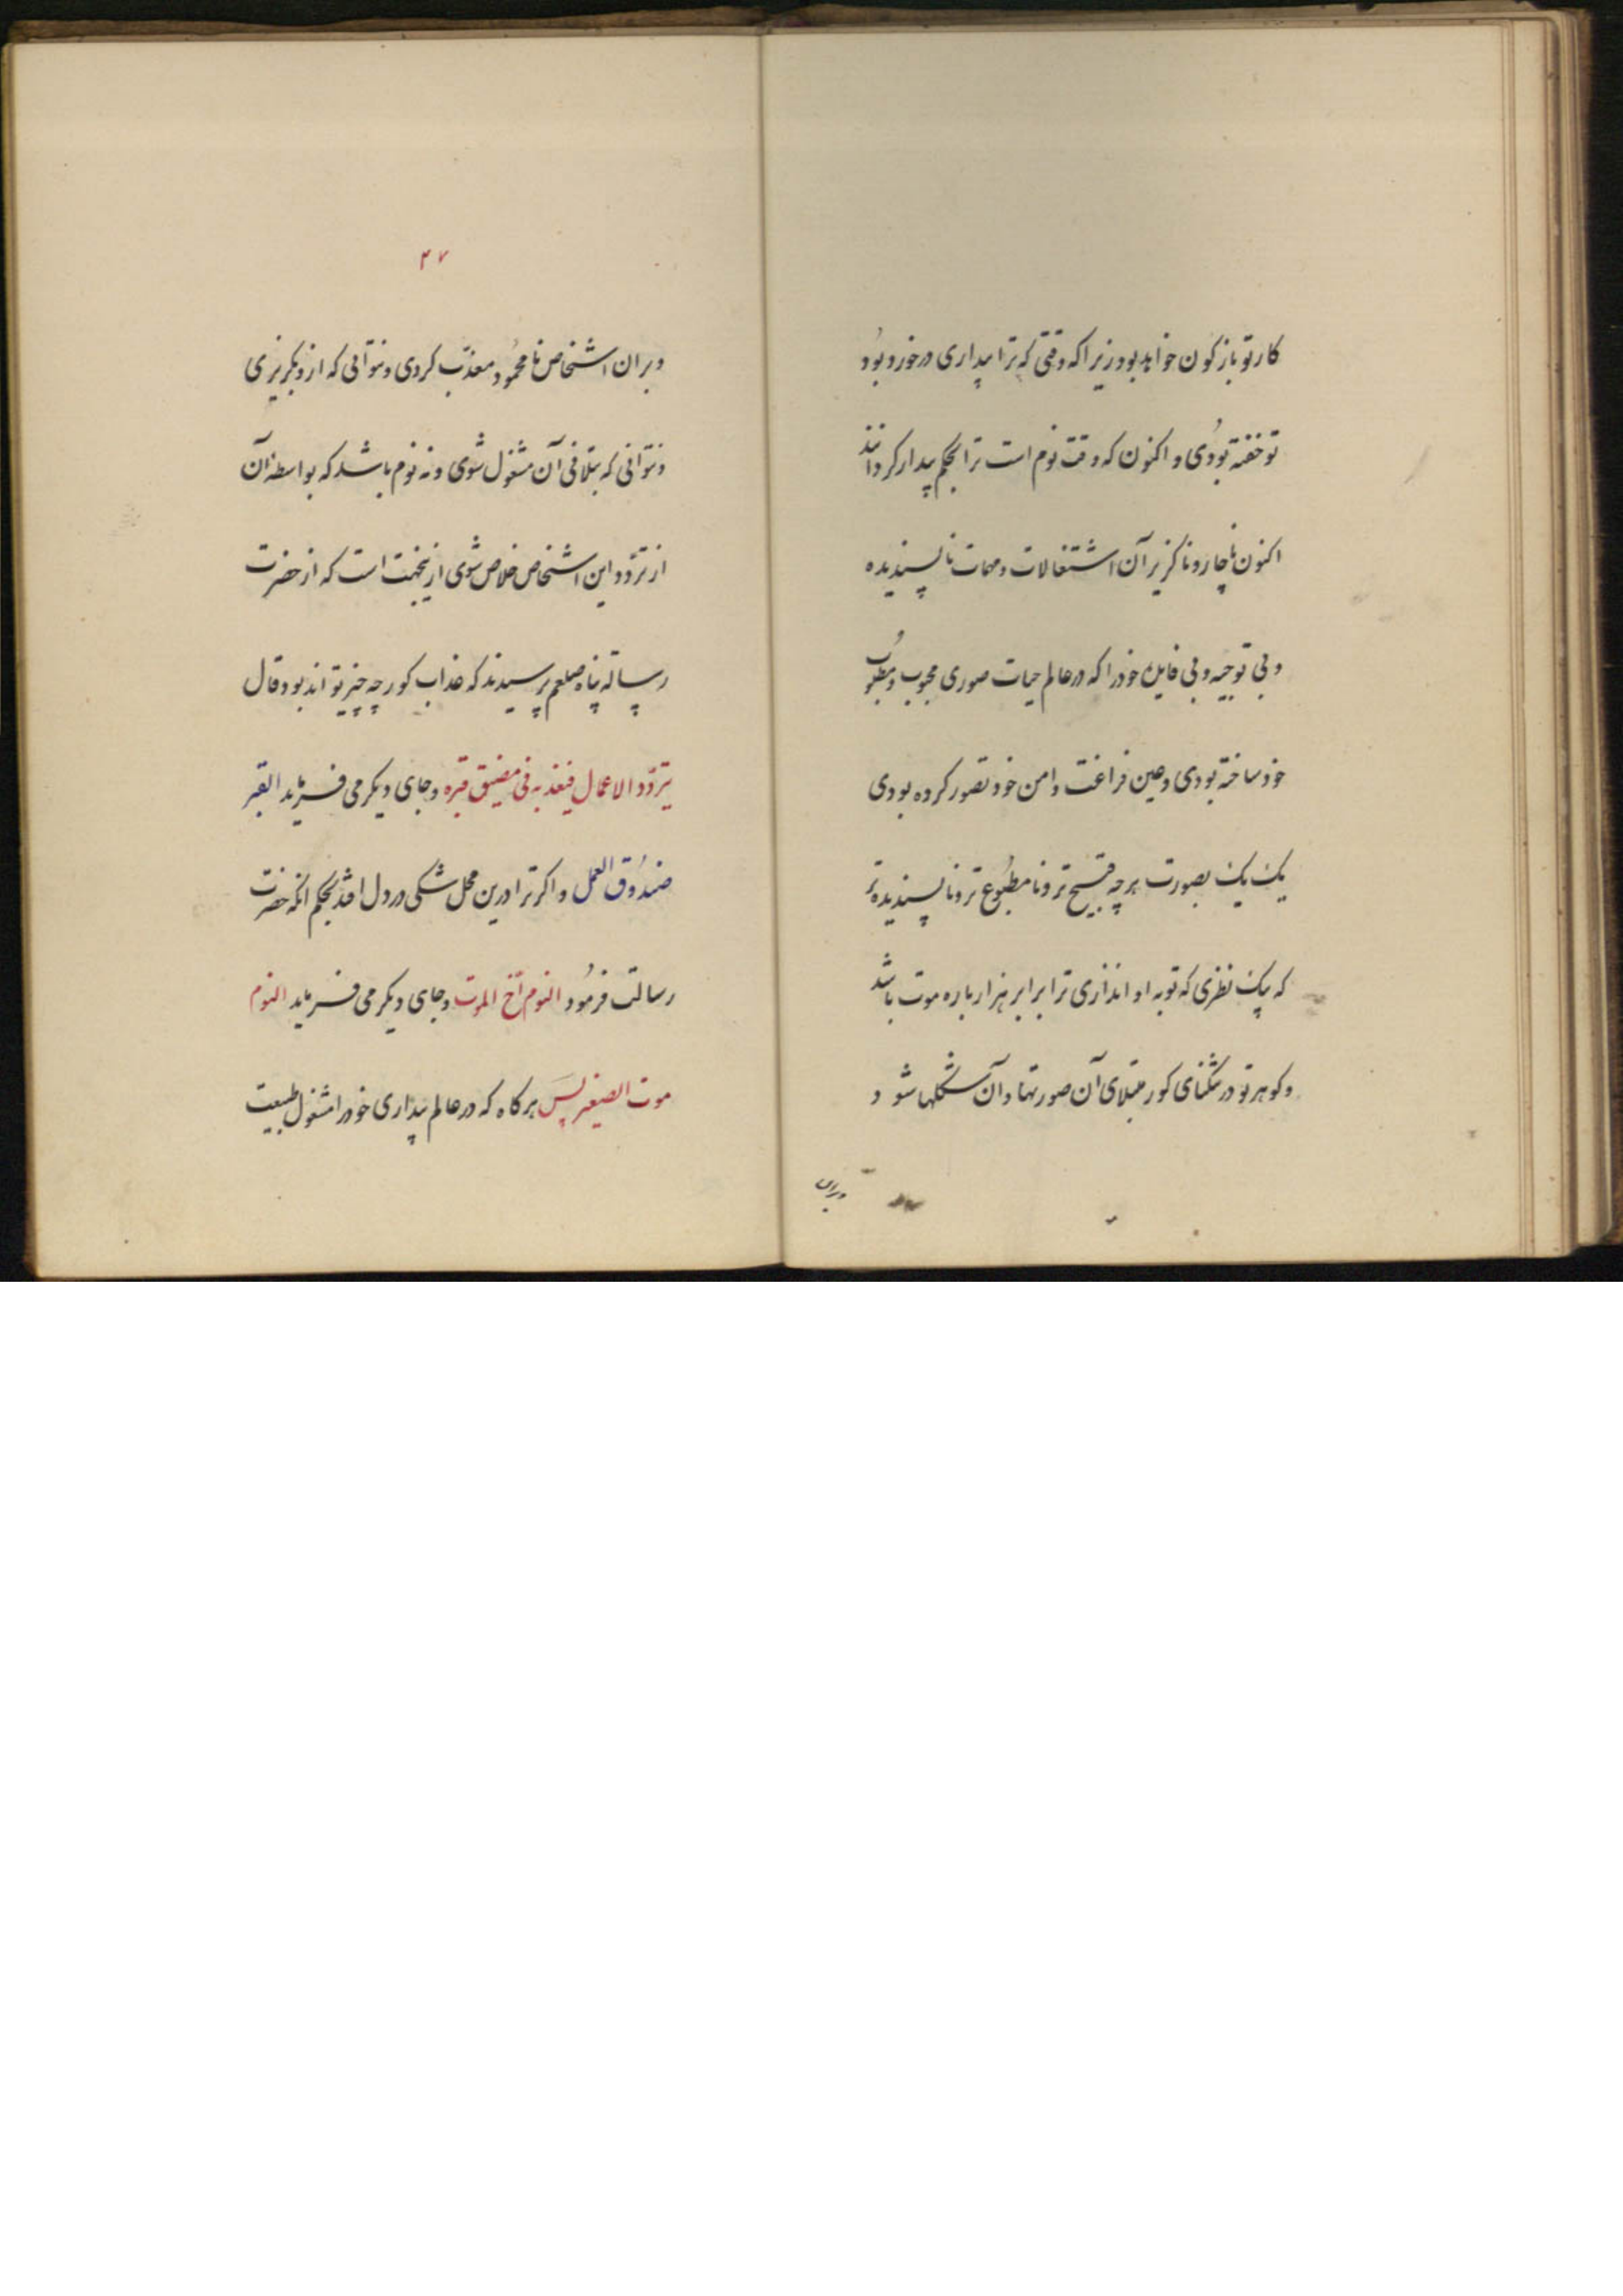 کار تو باز کون خواهد بود زیرا که وقتی که ترا بیداری در خورد بود
تو خفته بودی و اکنون که وقت نوم است ترا بحکم بیدار کردانند
اکنون ناچار و ناکزیر آن اشتغالات و مهمات ناپسندیده
و بی توجیه و بی فایده خود را که در عالم حیات صوری محبوب و مطلوب
خود ساخته بودی و عین فراغت و امن خود تصور کرده بودی
یک یک بصورت هر چه قبیح تر و نامطبوع تر و ناپسندیده تر
که یک نظری که تو به او اندازی ترا برابر هزار باره موت باشد
و کوهر تو در تنکنای کور مبتلای آن صورتها و آن شکلها شود
و بران
۲۷
و بران اشخاص نامحمود معذب کردی و نتوانی که از و بکریزی
و نتوانی که بتلافی آن مشغول شوی و نه نوم باشد که بواسطه آن
از تردد این اشخاص خلاص شوی ازینجهت است که از حضرت
رساله پناه صلعم پرسیدند که عذاب کور چه چیز تواند بود قال
یتردد الاعمال فیعذبه فی مضیق قبره و جای دیکر می فرماید القبر
صندوق العمل و اکر ترا درین محل شکی در دل افتد بحکم انکه حضرت
رسالت فرمود النوم أخ الموت و جای دیکر می فرماید النوم
موت الصغیر پس هر کاه که در عالم بیداری خود را مشغول طبیعت